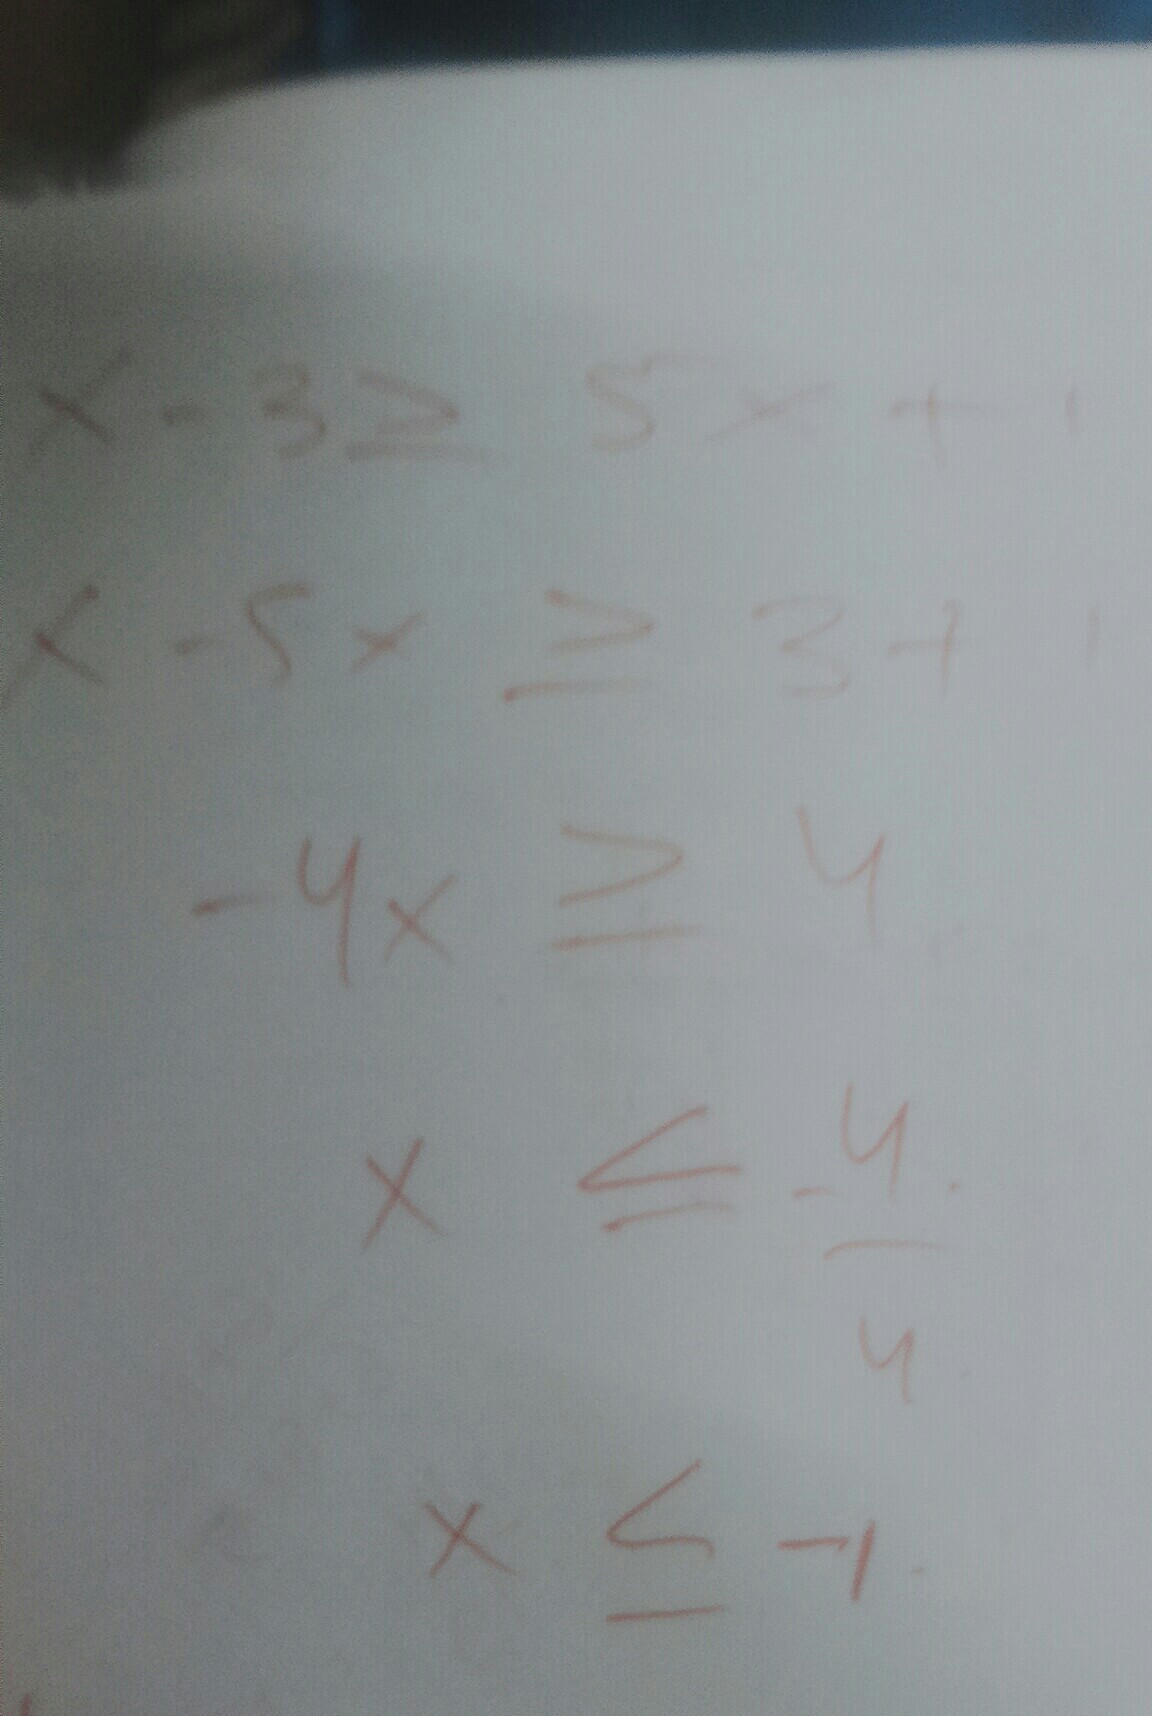 x - 3 ≥ 5x + 1
x - 5x ≥ 3 + 1
-4x ≥ 4
x ≤ -4/4
x ≤ -1